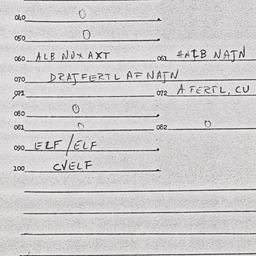 040 0
050 0
060 ALB NUX AXT 061 #ALB NATN
070 DRATFERTL AF NATN
071 072 A FERTL, CU
080 0
081 0 082 0
090 ELF/ELF
100 CVELF